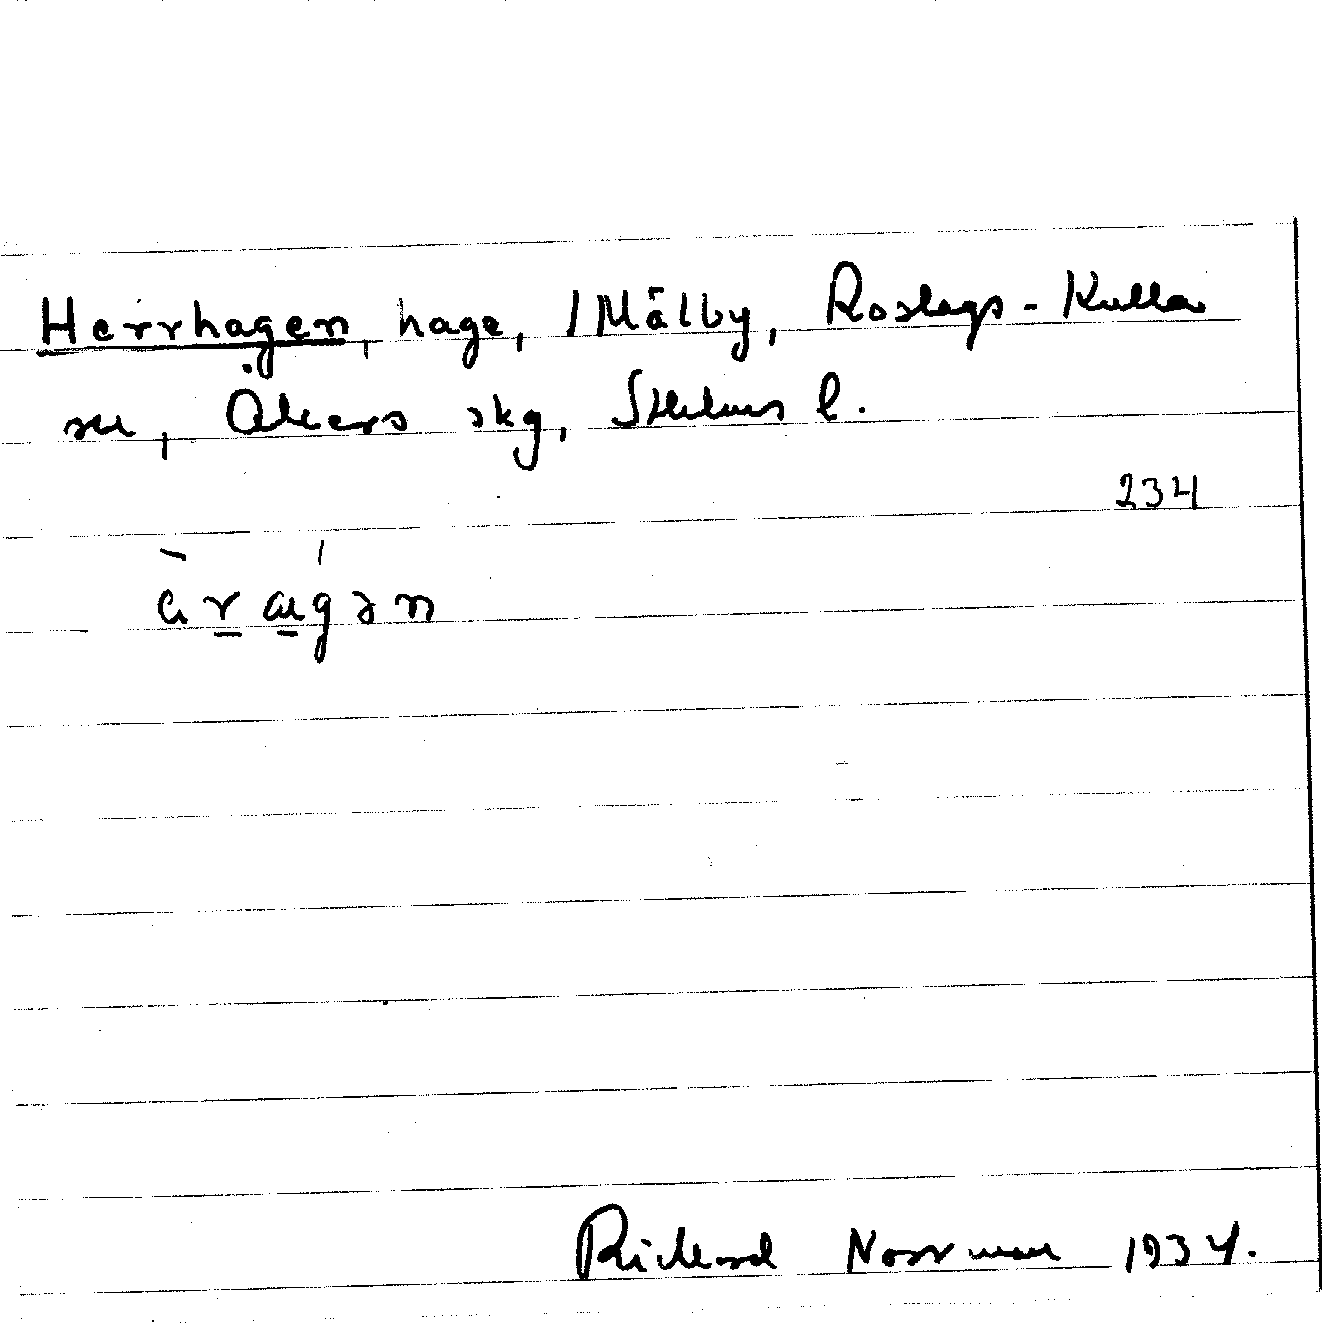 Herrhagen, hage, / Målby, Roslags-Kulla
sn, Åkers skg, Sthlms l.
234
Richard Norrman 1934.